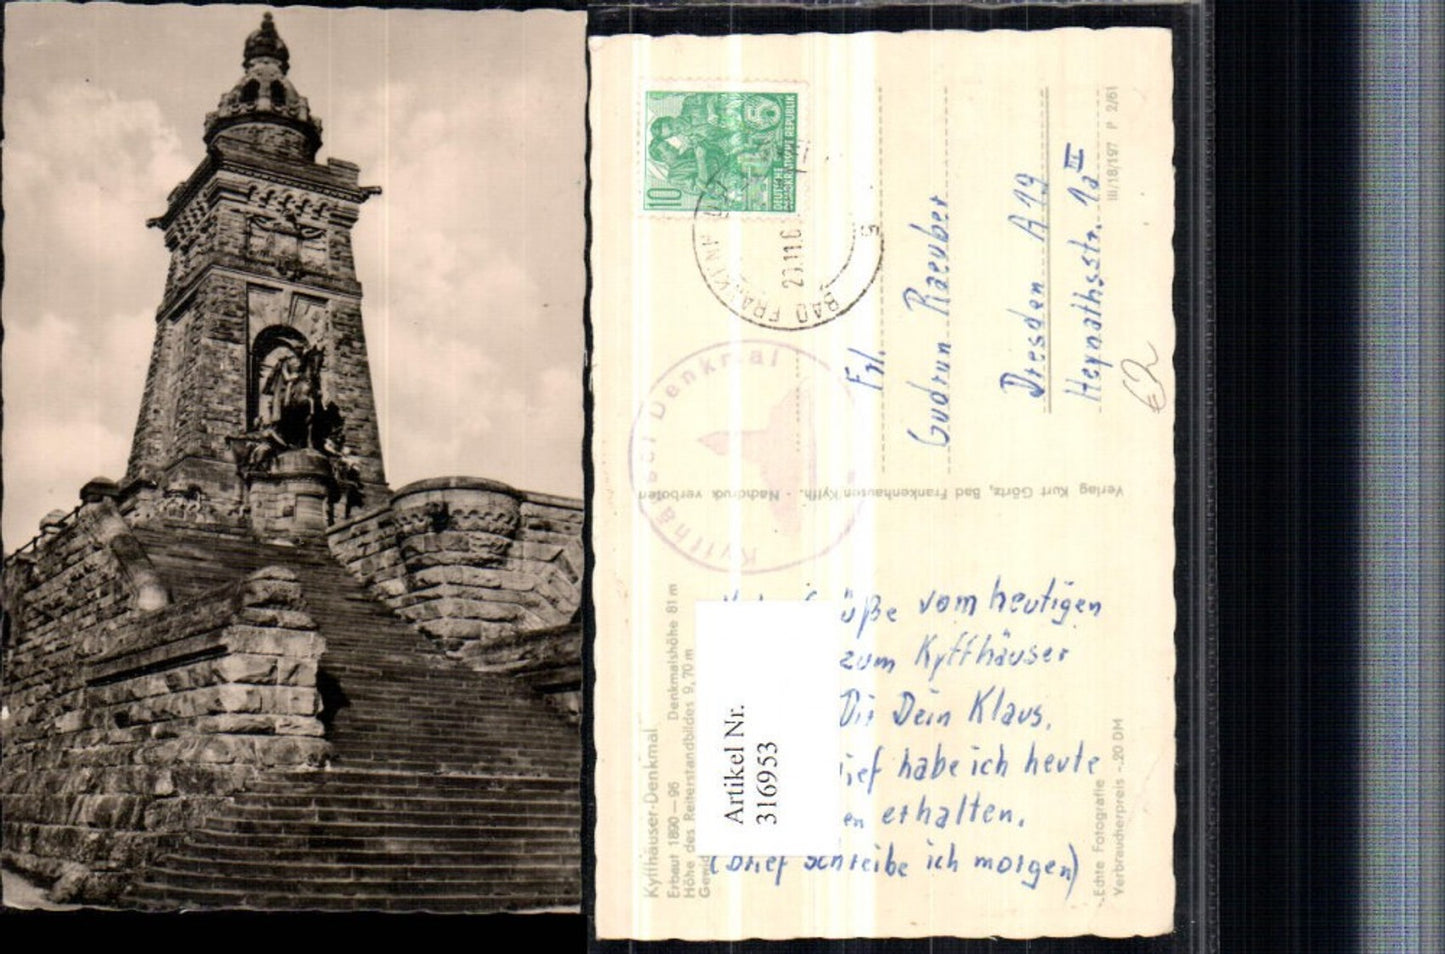 Kyffhäuser-Denkmal
Erbaut 1890—96 Denkmalshöhe 81 m
Höhe des Reiterstandbildes 9,70 m
Gewid
üße vom heutigen
zum Kyffhäuser
Dir Dein Klaus.
ief habe ich heute
en erhalten.
(Brief schreibe ich morgen)
Echte Fotografie
Verbraucherpreis -.20 DM
Verlag Kurt Görtz, Bad Frankenhausen Kyffh. · Nachdruck verboten
Kyffhäuser Denkmal
10
DEUTSCHE
DEMOKRATISCHE REPUBLIK
5
BAD FRANKENH
23.11.6
Frl.
Gudrun Raeuber
Dresden A 19
Heynathsstr. 1a III
III/18/197 P 2/61
Artikel Nr.
316953